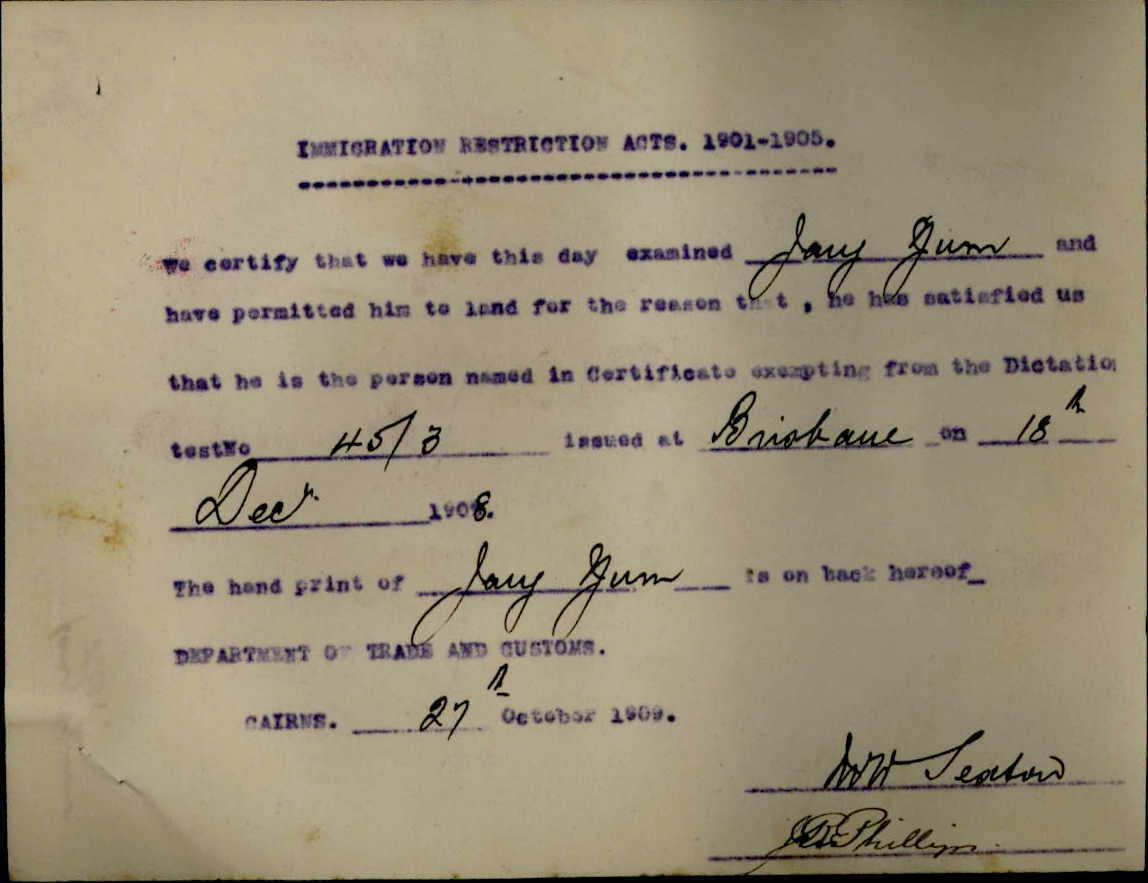 IMMIGRATION RESTRICTION ACTS. 1901-1905.
We certify that we have this day examined Jang Gum and
have permitted him to land for the reason that , he has satisfied us
that he is the person named in Certificate exempting from the Dictation
testNo 45/3 issued at Brisbane on 18th
Decr. 1908.
The hand print of Jang Gum is on back hereof_
DEPARTMENT OF TRADE AND CUSTOMS.
CAIRNS. 27th October 1909.
Sexton
Phillips.